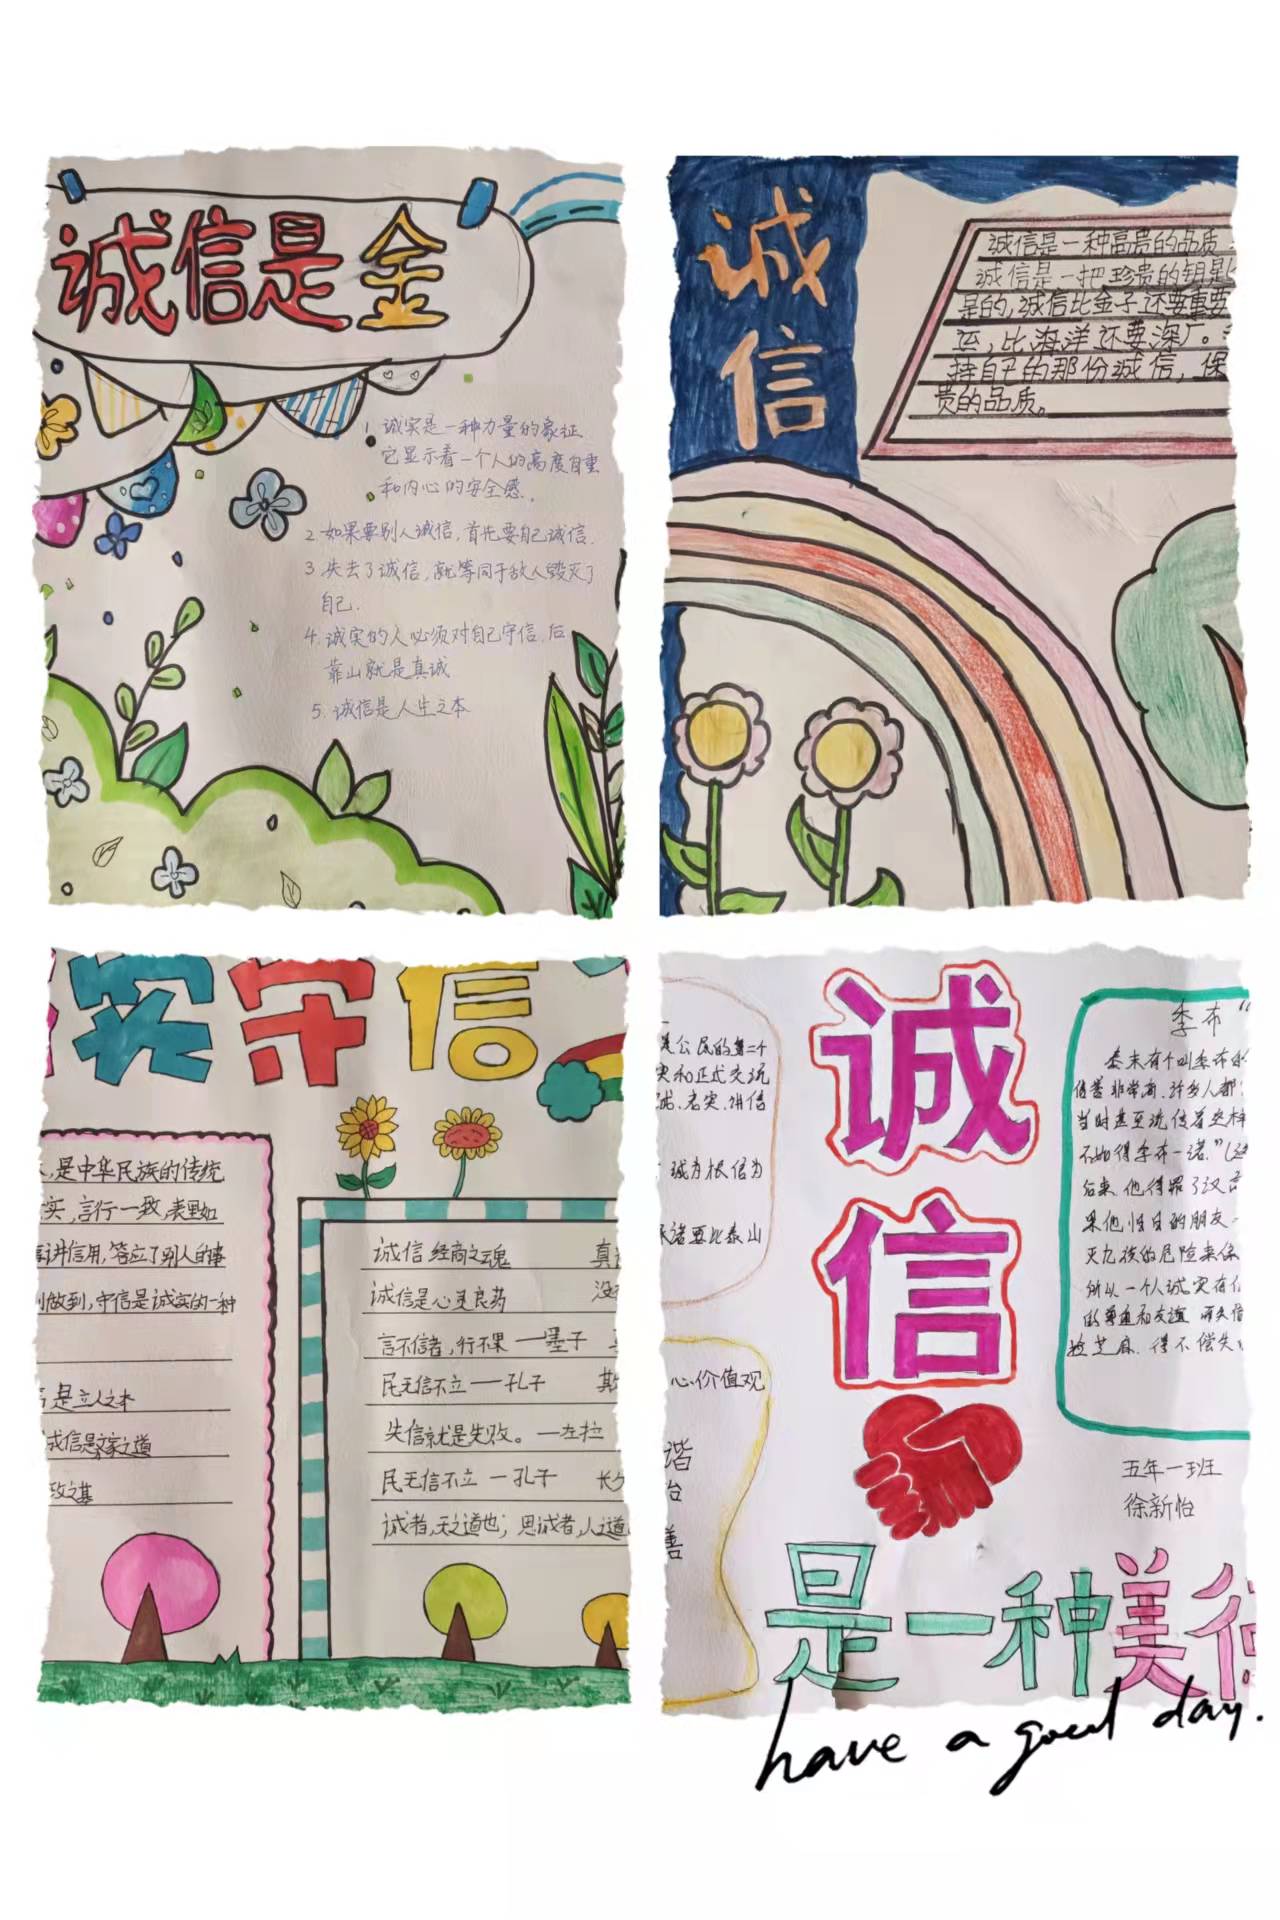 诚信是金
1. 诚实是一种力量的象征
它显示着一个人的高度自重
和内心的安全感。
2. 如果要别人诚信,首先要自己诚信.
3. 失去了诚信,就等同于敌人毁灭了
自己.
4. 诚实的人必须对自己守信.后
靠山就是真诚
5. 诚信是人生之本
诚
信
诚信是一种高贵的品质
诚信是一把珍贵的钥匙
是的,诚信比金子还要重要
,比海洋还要深广。
持自己的那份诚信,保
贵的品质。
实守信
,是中华民族的传统
实,言行一致,表里如
讲信用,答应了别人的事
做到,守信是诚实的一种
是立人之本
诚信是家之道
政之基
诚信 经商之魂
诚信是心灵良药
言不信者,行不果 一墨子
民无信不立 一孔子
失信就是失败。一左拉
民无信不立 一孔子
诚者,天之道也;思诚者,人之道
诚
信
是公民的第二个
实和正式交流
诚.老实.讲信
诚为根信为
承诺要比泰山
心价值观
谐
治
善
季布“
秦末有个叫季布的
信誉非常高.许多人都
当时甚至流传着这样
不如得季布一诺.”(这
后来他得罪了汉高
果他旧日的朋友
灭九族的危险来保
所以一个人诚实有信
的尊重和友谊 而失信
捡芝麻.得不偿失
五年一班
徐新怡
是一种美德
have a good day.